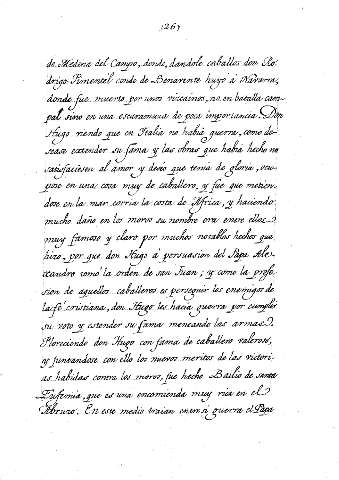 267
de Medina del Campo, donde, dandole caballos don Ro-
drigo Pimentel conde de Benavente huyó a Navarra,
donde fue muerto por unos vizcainos, no en batalla cam-
pal sino en una escaramuza de poca importancia. Don
Hugo viendo que en Italia no habia guerra, como de-
sease extender su fama y las obras que habia hecho no
satisfaciesen al amor y deseo que tenia de gloria, ocu-
pose en una cosa muy de caballero, y fue que metien-
dose en la mar corria la costa de Africa, y haciendo
mucho daño en los moros su nombre era entre ellos
muy famoso y claro por muchos notables hechos que
hizo, por que don Hugo a persuasion del Papa Ale-
xandro tomó la orden de san Juan; y como la profe-
sion de aquellos caballeros es perseguir los enemigos de
la fé cristiana, don Hugo les hacia guerra por cumplir
su voto y estender su fama meneando las armas.
Floreciendo don Hugo con fama de caballero valeroso,
y juntandose con ello los nuevos meritos de las victori-
as habidas contra los moros, fue hecho Bailio de santa
Eufemia, que es una encomienda muy rica en el
Abruzo. En este medio traian entre si guerra el Papa